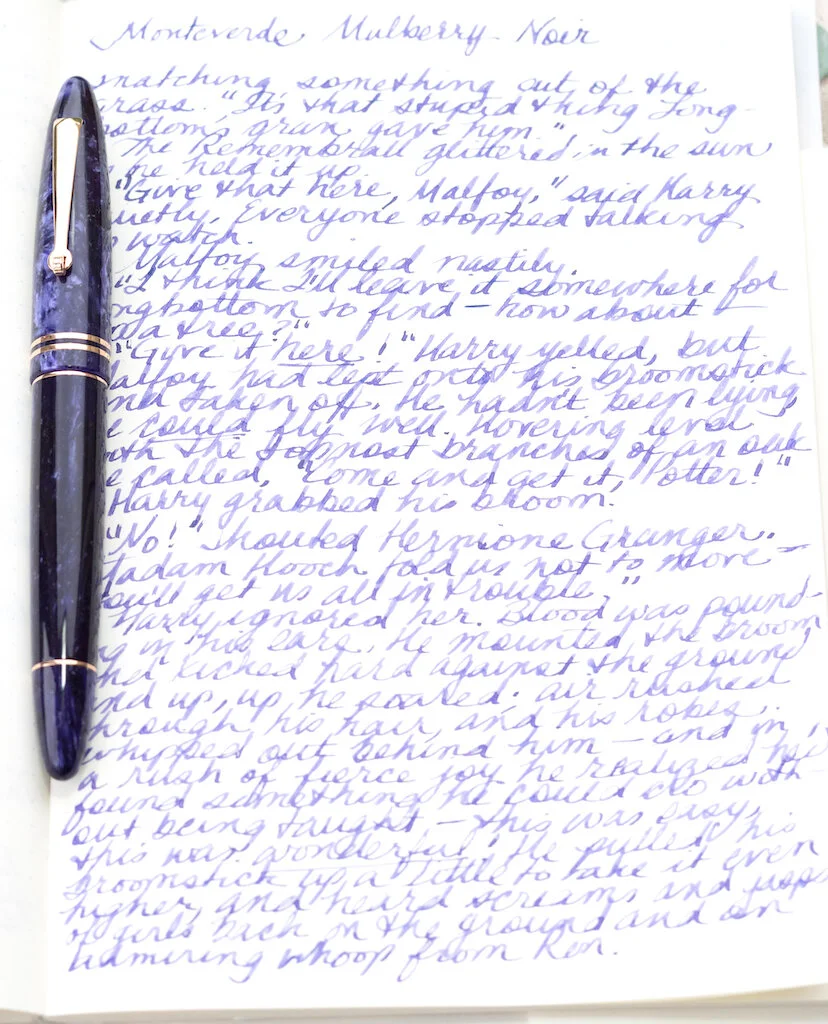 Monteverde Mulberry Noir
snatching something out of the
grass. "It's that stupid thing Long-
bottom's gran gave him."
The Remembrall glittered in the sun
he held it up.
"Give that here, Malfoy," said Harry
uietly. Everyone stopped talking
watch.
Malfoy smiled nastily.
"I think I'll leave it somewhere for
ngbottom to find — how about —
a tree?"
"Give it here!" Harry yelled, but
Malfoy had lept onto his broomstick
nd taken off. He hadn't been lying,
e could fly well. Hovering level
ith the topmost branches of an oak
e called, "Come and get it, Potter!"
Harry grabbed his broom.
"No!" shouted Hermione Granger.
Madam Hooch told us not to move —
ou'll get us all in trouble."
Harry ignored her. Blood was pound-
ng in his ears. He mounted the broom
nd kicked hard against the ground
nd up, up he soared; air rushed
through his hair, and his robes
whipped out behind him — and in
a rush of fierce joy he realized he'd
found something he could do with-
out being taught — this was easy,
this was wonderful! He pulled his
broomstick up a little to take it even
higher, and heard screams and gasps
of girls back on the ground and an
admiring whoop from Ron.